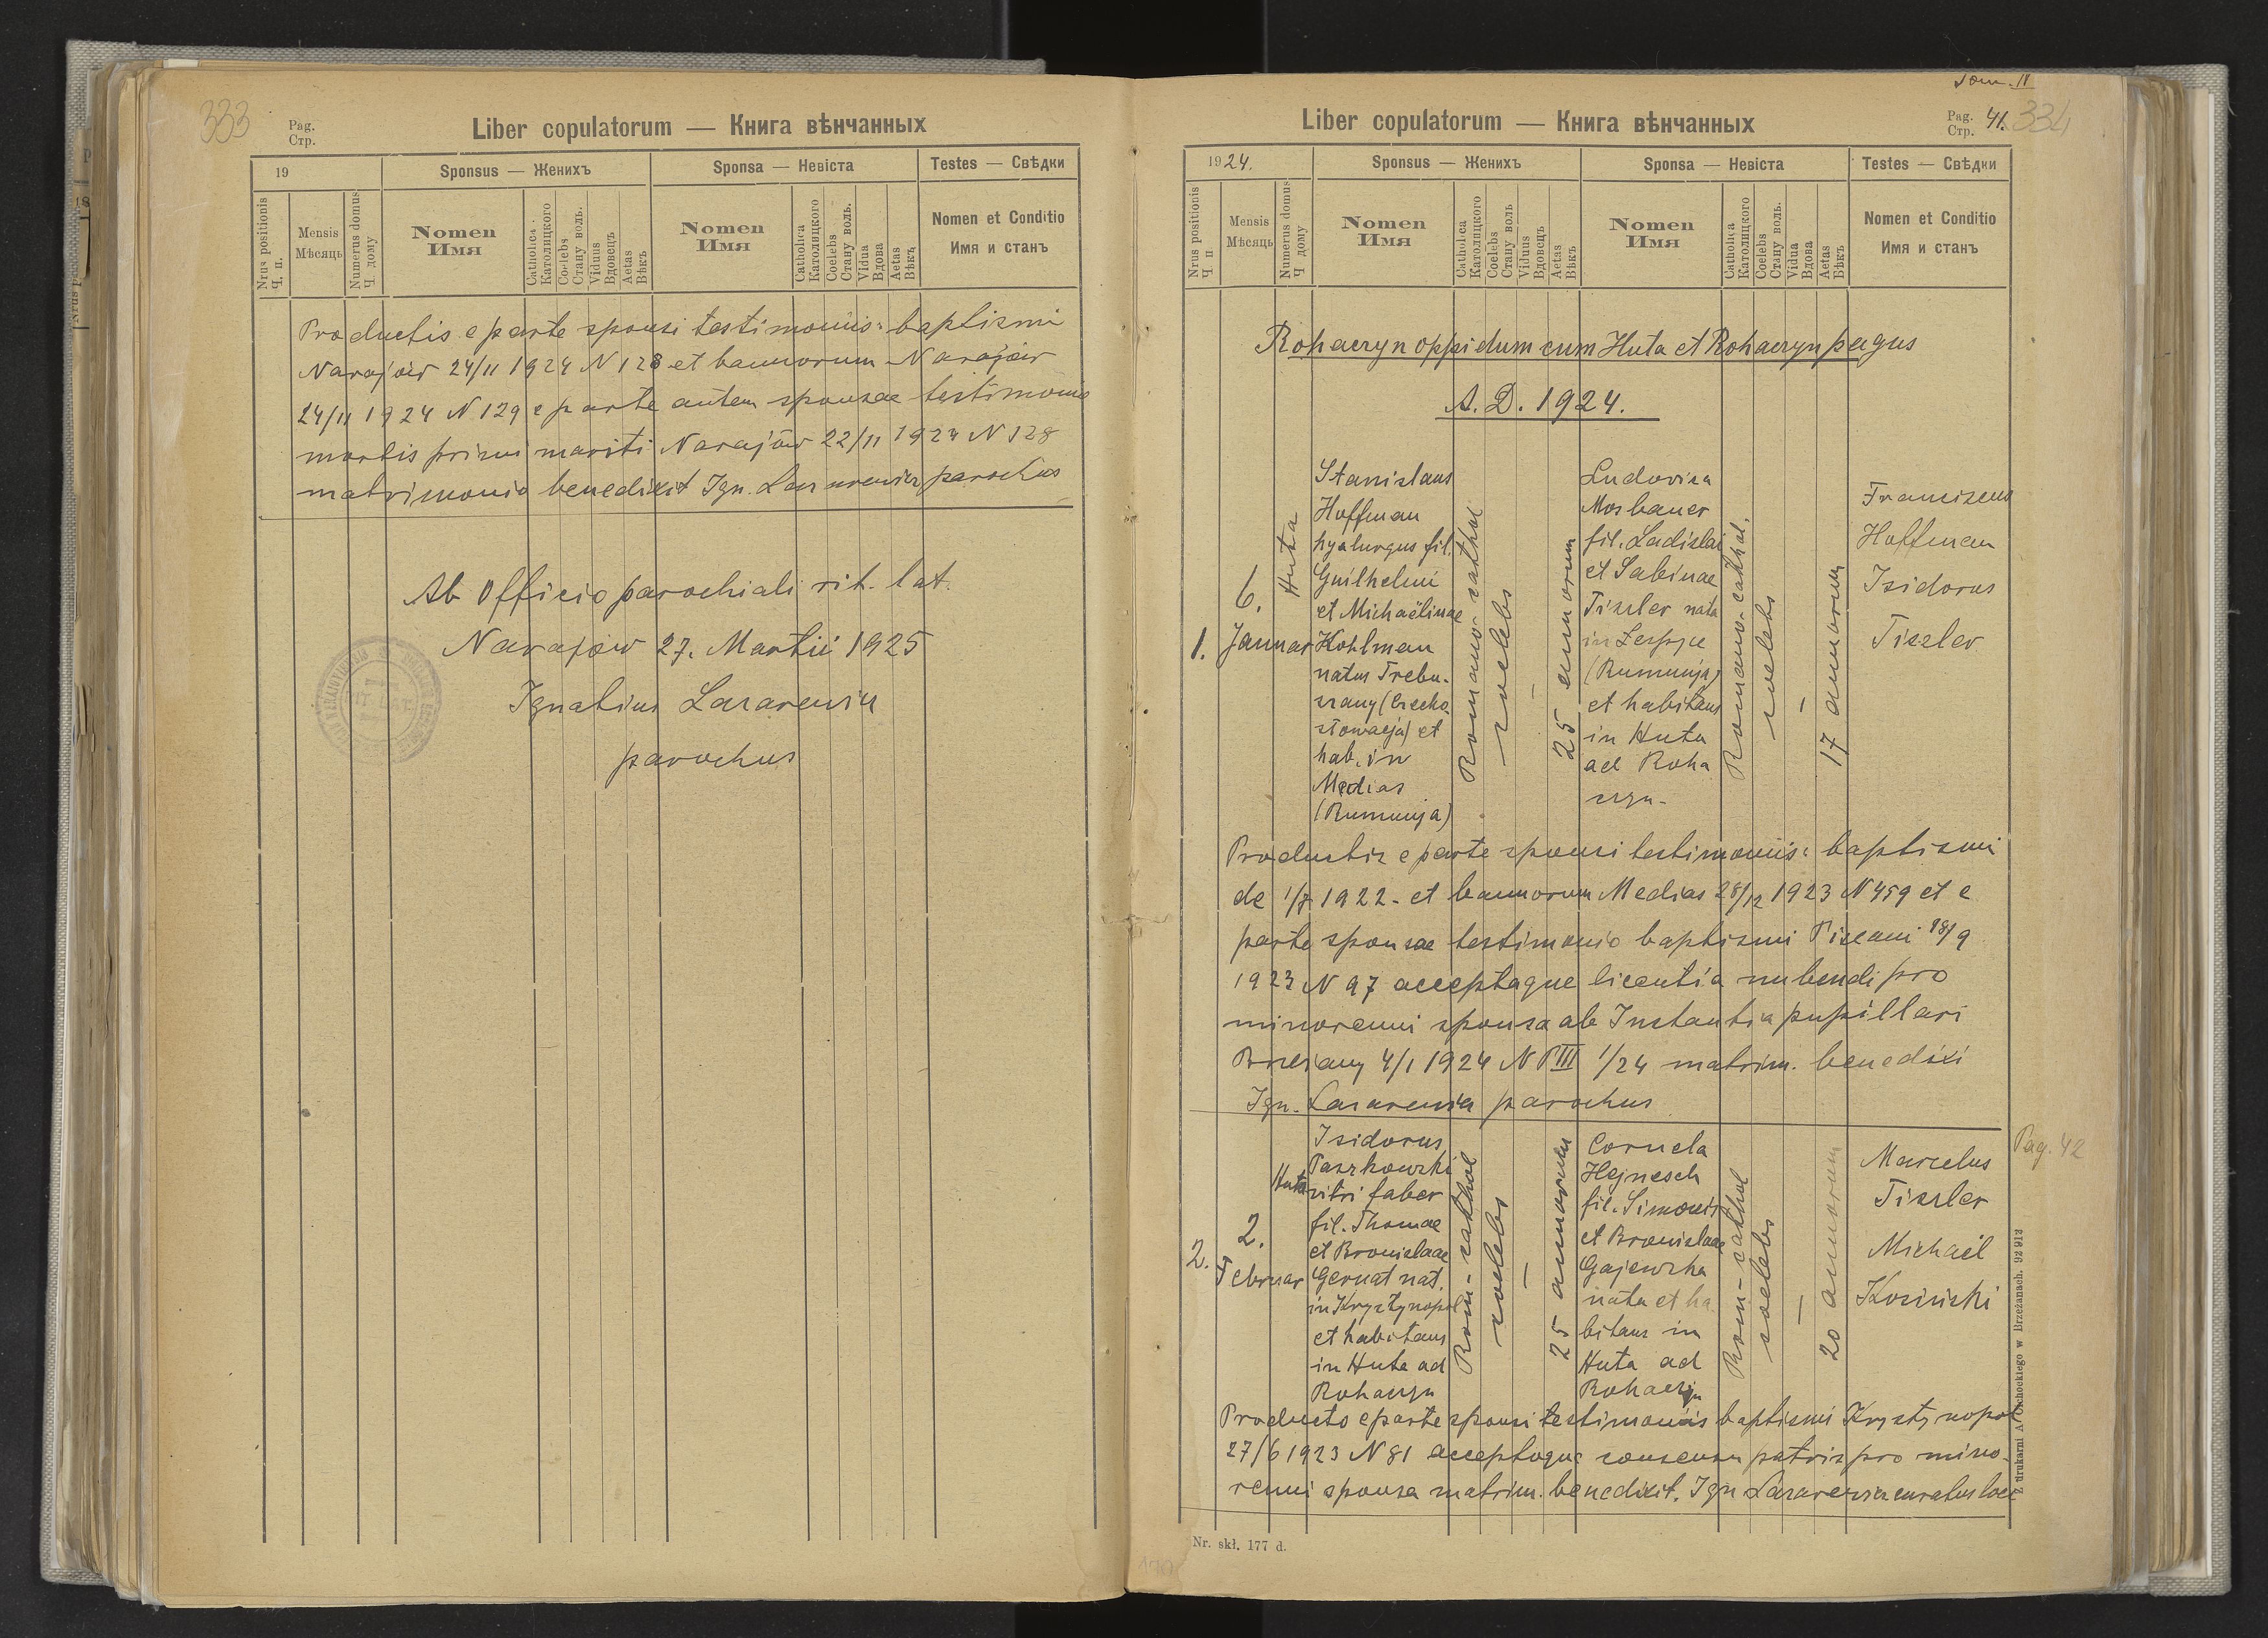 333
Pag.
Стр.
Liber copulatorum — Книга вѣнчанных
19
Sponsus — Женихъ
Sponsa — Невіста
Testes — Свѣдки
Nrus positionis
Ч. п.
Mensis
Мѣсяць
Numerus domus
Ч. дому
Nomen
Имя
Catholica
Католицкого
Coelebs
Стану воль.
Viduus
Вдовецъ
Aetas
Вѣкъ
Nomen
Имя
Catholica
Католицкого
Coelebs
Стану воль.
Vidua
Вдова
Aetas
Вѣкъ
Nomen et Conditio
Имя и станъ
Productis e parte sponsi testimoniis: baptismi
Narajów 24/11 1924 N 128 et bannorum Narajów
24/11 1924 N 129 e parte autem sponsae testimonio
mortis primi mariti Narajów 22/11 1924 N 128
matrimonio benedixit Ign. Lazarewicz parochus
Ab Officio parochiali rit. lat.
Narajow 27. Martii 1925
Ignatius Lazarewicz
parochus
Tom. IV
Liber copulatorum — Книга вѣнчанных
Pag.
Стр. 41. 334
1924.
Sponsus — Женихъ
Sponsa — Невіста
Testes — Свѣдки
Nrus positionis
Ч п
Mensis
Мѣсяць
Numerus domus
Ч дому
Nomen
Имя
Catholica
Католицкого
Coelebs
Стану воль
Viduus
Вдовецъ
Aetas
Вѣкъ
Nomen
Имя
Catholica
Католицкого
Coelebs
Стану воль.
Vidua
Вдова
Aetas
Вѣкъ
Nomen et Conditio
Имя и станъ
Rohaczyn oppidum cum Huta et Rohaczyn pagus
A. D. 1924.
1.
6.
Januar
Huta
Stanislaus
Hoffman
hyalurgus fil.
Guilhelmi
et Michaëlinae
Kohlman
natus Trebu-
szany (Czecho
słowacja) et
hab. in
Medias
(Rumunja)
Romano-cathol
coelebs
—
25 annorum
Ludovica
Mosbauer
fil. Ladislai
et Sabinae
Tiszler nata
in
(Rumunja)
et habitans
in Huta
ad Roha
czyn-
Romano-cathol.
coelebs
—
17 annorum
Franciscus
Hoffman
Isidorus
Tiszler
Productis e parte sponsi testimoniis: baptismi
de 1/7 1922 - et bannorum Medias 28/12 1923 N 459 et e
parte sponsae testimonio baptismi Piscani 18/9
1923 N 97 acceptaque licentia nubendi pro
minorenni sponsa ab Instantia pupillari
Brzeżany 4/1 1924 N P III 1/24 matrim. benedixi
Ign. Lazarewicz parochus
2.
2.
Februar
Huta
Isidorus
Paszkowski
vitri faber
fil. Thomae
et Bronislaae
Gernat nat.
in Krystynopol
et habitans
in Huta ad
Rohaczyn
Rom-cathol
coelebs
—
25 annorum
Cornela
Hejnesch
fil. Simonis
et Bronislaae
Gajewska
nata et ha
bitans in
Huta ad
Rohaczyn
Rom-cathol
coelebs
—
20 annorum
Marcelus
Tiszler
Michaël
Kosiński
Pag. 42
Producto e parte sponsi testimoniis baptismi Krystynopol
27/6 1923 N 81 acceptoque consensu patris pro mino-
renni sponsa matrim. benedixit. Ign Lazarewicz curatus loci
Nr. skł. 177 d.
Z drukarni A. Ochockiego w Brzeżanach. 92 913